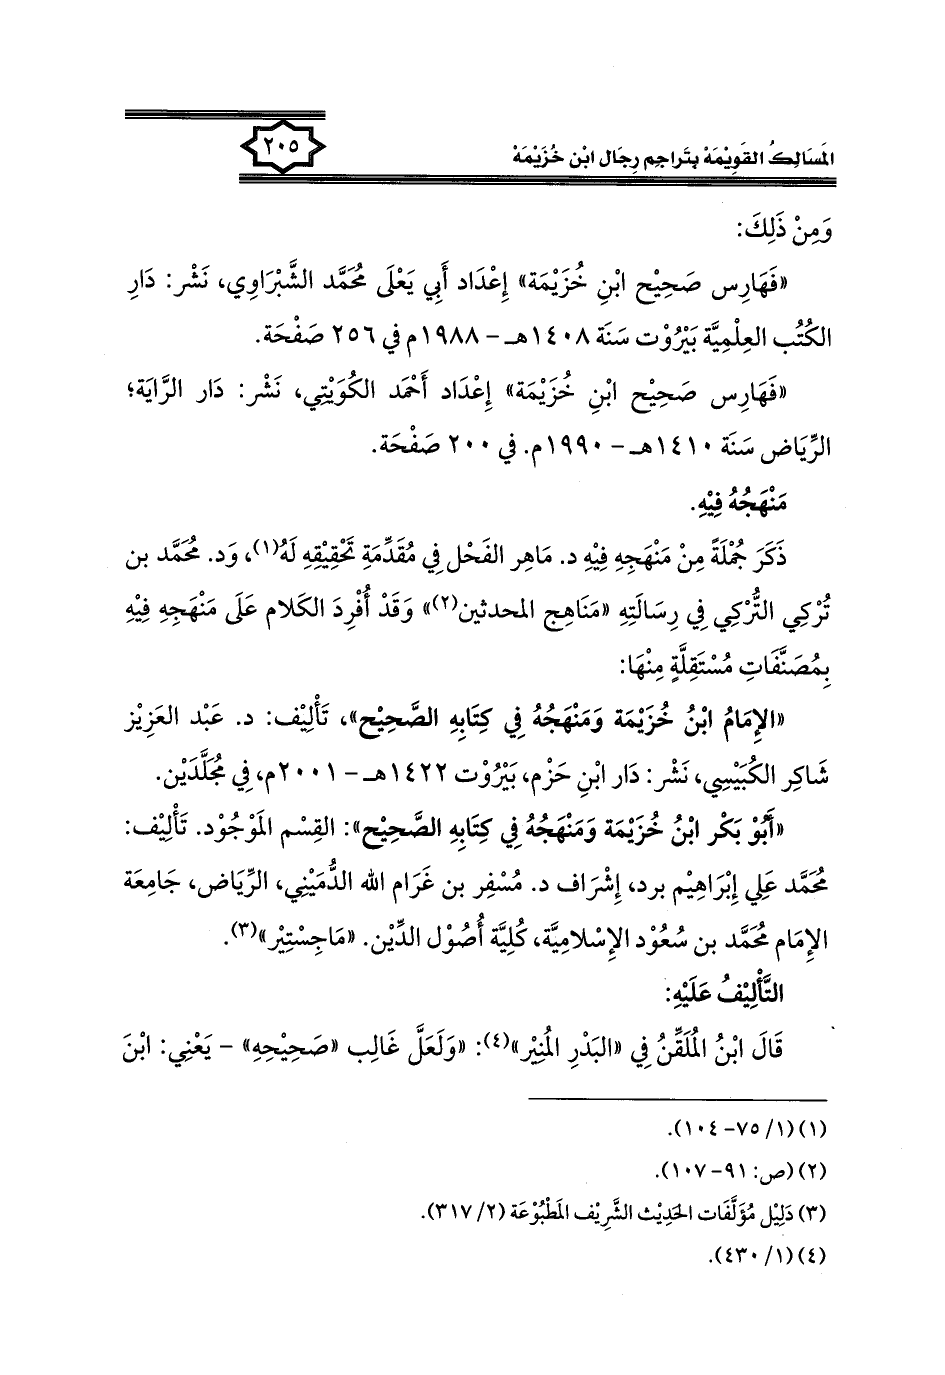 المَسَالِكُ القَوِيْمَة بِتَراجِم رِجَال ابْن خُزَيْمَة
٢٠٥
وَمِنْ ذَلِكَ:
«فَهَارِس صَحِيْح ابْنِ خُزَيْمَة» إِعْدَاد أَبِي يَعْلَى مُحَمَّد الشَّبْرَاوِي، نَشْر: دَارِ
الكُتُب العِلْمِيَّة بَيْرُوْت سَنَة ١٤٠٨هـ – ١٩٨٨م في ٢٥٦ صَفْحَة.
«فَهَارِس صَحِيْح ابْنِ خُزَيْمَة» إِعْدَاد أَحْمَد الكُوَيْتِي، نَشْر: دَار الرَّايَة؛
الرِّيَاض سَنَة ١٤١٠هـ – ١٩٩٠م. في ٢٠٠ صَفْحَة.
مَنْهَجُهُ فِيْهِ.
ذَكَرَ جُمْلَةً مِنْ مَنْهَجِهِ فِيْهِ د. مَاهِر الفَحْل فِي مُقَدِّمَةِ تَحْقِيْقِهِ لَهُ(١)، وَد. مُحَمَّد بن
تُرْكِي التُّرْكِي فِي رِسَالَتِهِ «مَنَاهِج المحدثين(٢)» وَقَدْ أُفْرِدَ الكَلَام عَلَى مَنْهَجِهِ فِيْهِ
بِمُصَنَّفَاتٍ مُسْتَقِلَّةٍ مِنْهَا:
«الإِمَامُ ابْنُ خُزَيْمَة وَمَنْهَجُهُ فِي كِتَابِهِ الصَّحِيْح»، تَأْلِيْف: د. عَبْد العَزِيْز
شَاكِر الكُبَيْسِي، نَشْر: دَار ابْنِ حَزْم، بَيْرُوْت ١٤٢٢هـ – ٢٠٠١م، فِي مُجَلَّدَيْن.
«أَبُوْ بَكْر ابْنُ خُزَيْمَة وَمَنْهَجُهُ فِي كِتَابِهِ الصَّحِيْح»: القِسْم المَوْجُوْد. تَأْلِيْف:
مُحَمَّد عَلِي إِبْرَاهِيْم برد، إِشْرَاف د. مُسْفِر بن غَرَام الله الدُّمَيْنِي، الرِّيَاض، جَامِعَة
الإِمَام مُحَمَّد بن سُعُوْد الإِسْلَامِيَّة، كُلِيَّة أُصُوْل الدِّيْن. «مَاجِسْتِيْر»(٣).
التَّأْلِيْفُ عَلَيْهِ:
قَالَ ابْنُ المُلَقِّنُ فِي «البَدْرِ المُنِيْر»(٤): «وَلَعَلَّ غَالِب «صَحِيْحِهِ» – يَعْنِي: ابْنَ
(١) (١/ ٧٥– ١٠٤).
(٢) (ص: ٩١– ١٠٧).
(٣) دَلِيْل مُؤَلَّفَات الحَدِيْث الشَّرِيْف المَطْبُوْعَة (٢/ ٣١٧).
(٤) (١/ ٤٣٠).